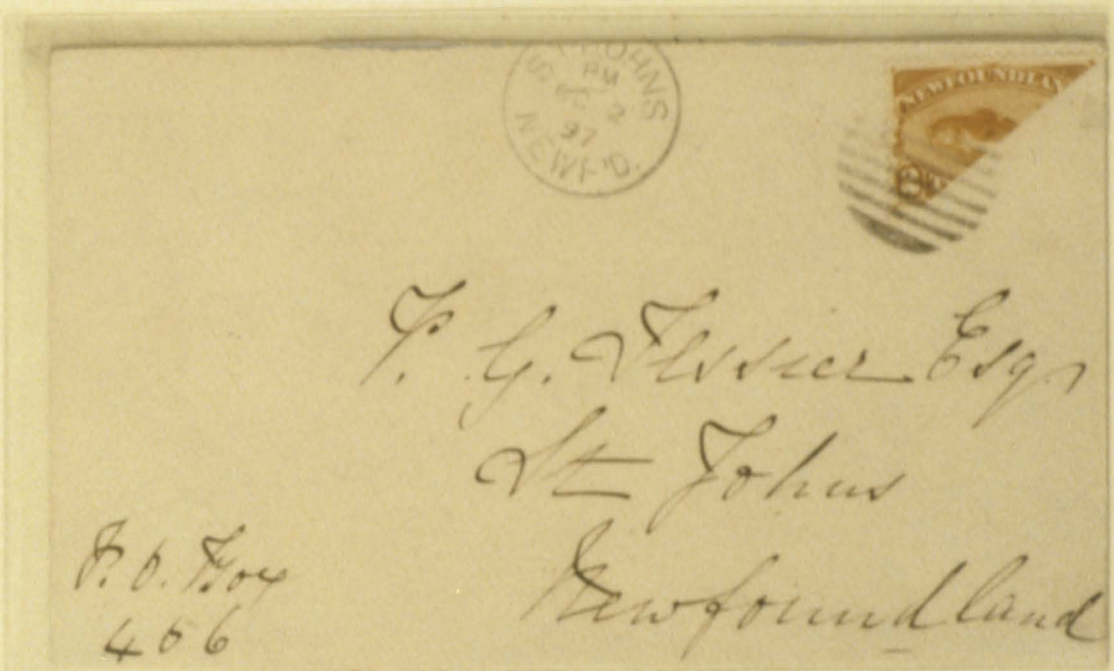 ST JOHNS
PM
2
97
NEWF'D.
NEWFOUNDLAN
P. G. Tessier Esqr
St Johns
Newfoundland
P.O. Box
406